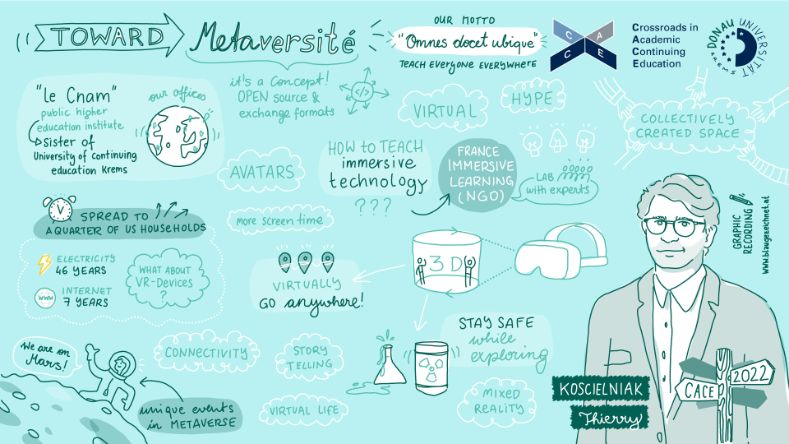 TOWARD
Metaversité
OUR MOTTO
"Omnes docet ubique"
TEACH EVERYONE EVERYWHERE
CACE
Crossroads in
Academic
Continuing
Education
DONAU UNIVERSITÄT
KREMS
"le Cnam"
public higher
education institute
Sister of
University of Continuing
education Krems
our offices
it's a concept!
OPEN source &
exchange formats
</>
VIRTUAL
HYPE
COLLECTIVELY
CREATED SPACE
AVATARS
HOW TO TEACH
immersive
technology
???
FRANCE
IMMERSIVE
LEARNING
(NGO)
LAB
with experts
SPREAD TO
A QUARTER OF US HOUSEHOLDS
more screen time
ELECTRICITY
46 YEARS
WWW
INTERNET
7 YEARS
WHAT ABOUT
VR-DEVICES
?
VIRTUALLY
GO anywhere!
3D
GRAPHIC
RECORDING
www.blaugezeichnet.at
STAY SAFE
while
exploring
We are on
Mars!
CONNECTIVITY
STORY
TELLING
unique events
in METAVERSE
VIRTUAL LIFE
MIXED
REALITY
KOSCIELNIAK
Thierry
CACE
2022